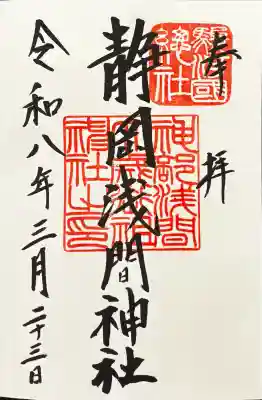 奉拝
駿河國
總社
静岡浅間神社
神部浅間
神社之印
令和八年三月二十三日